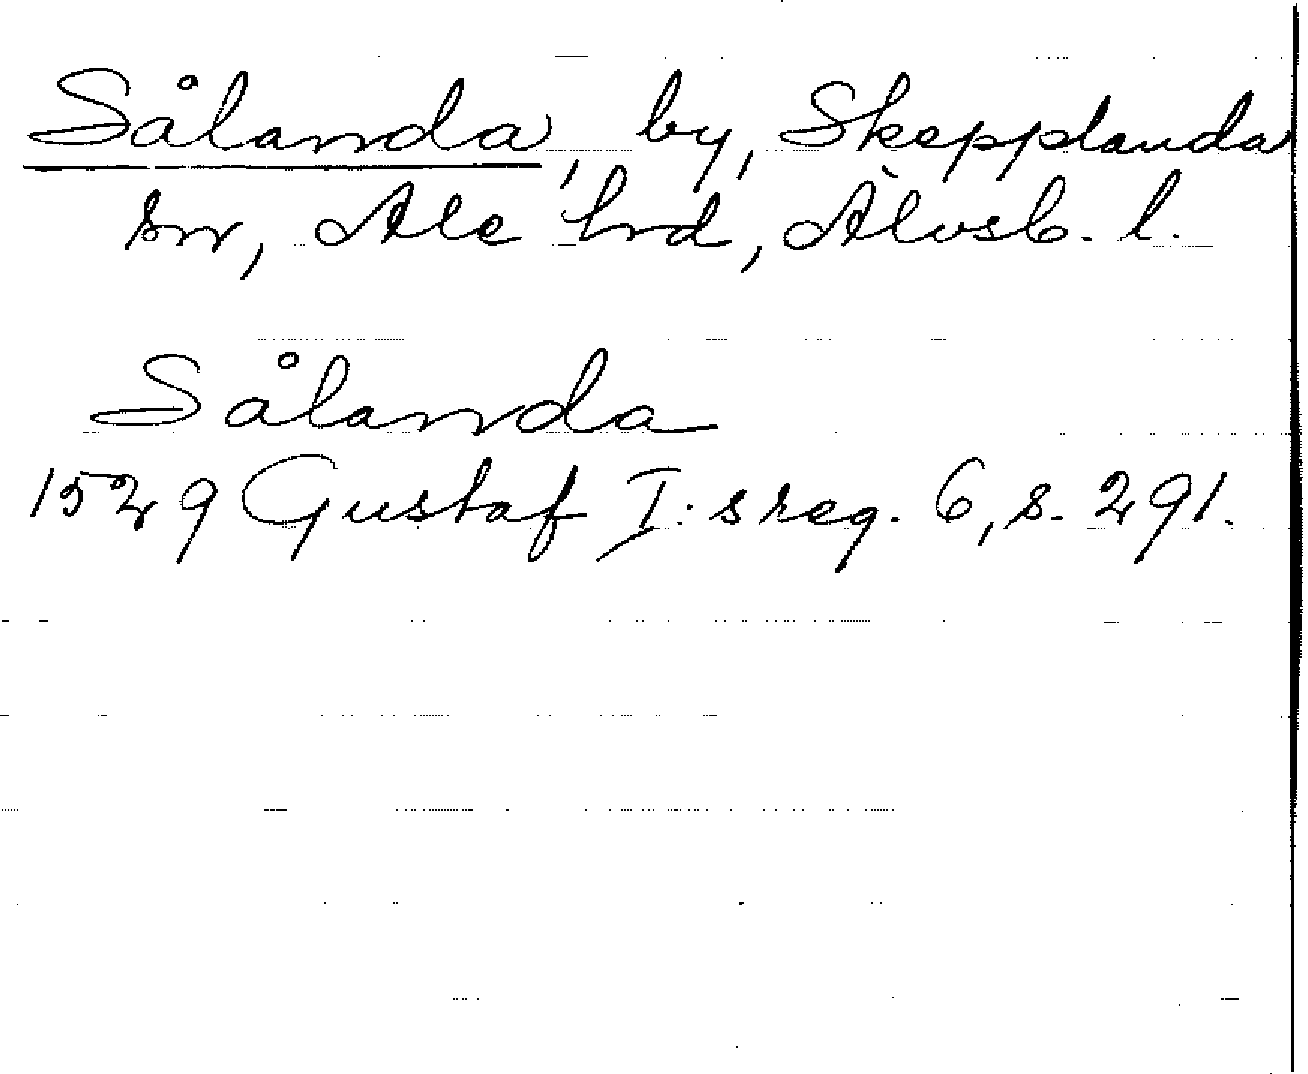 Sålanda, by, Skepplanda
sn, Ale hrd, Älvsb. l.
Sålanda
1529 Gustaf I:s reg. 6, s. 291.